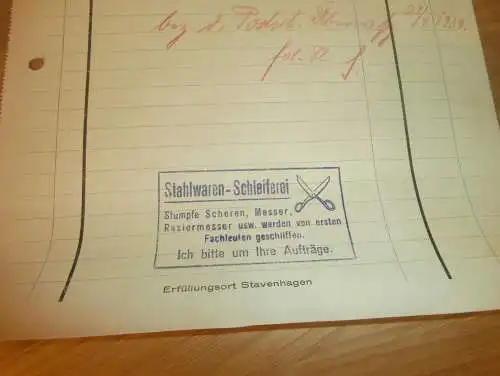 bez d. Postsch.
Stahlwaren-Schleiferei
Stumpfe Scheren, Messer,
Rasiermesser usw. werden von ersten
Fachleuten geschliffen.
Ich bitte um Ihre Aufträge.
Erfüllungsort Stavenhagen